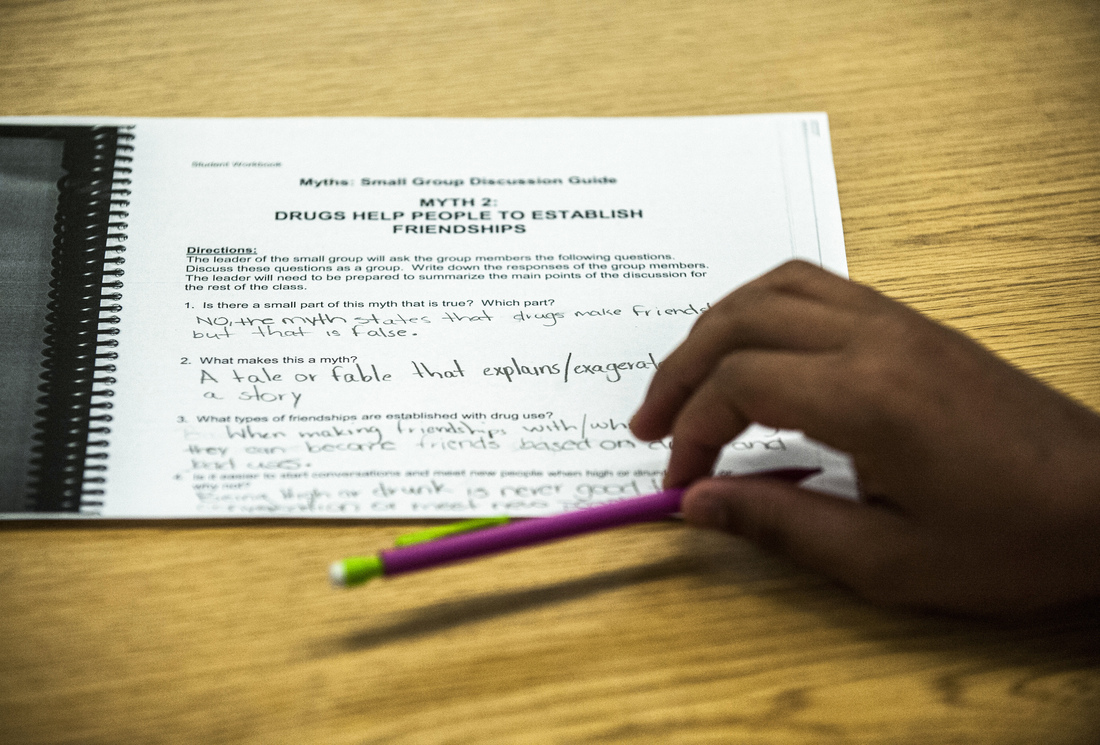 Student Workbook
Myths: Small Group Discussion Guide
MYTH 2:
DRUGS HELP PEOPLE TO ESTABLISH
FRIENDSHIPS
Directions:
The leader of the small group will ask the group members the following questions.
Discuss these questions as a group. Write down the responses of the group members.
The leader will need to be prepared to summarize the main points of the discussion for
the rest of the class.
1. Is there a small part of this myth that is true? Which part?
NO, the myth states that drugs make
but that is false.
2. What makes this a myth?
A tale or fable that explains/
a story
3. What types of friendships are established with drug use?
When making friendships with/
they can become friends based on and
bad uses.
4. Is it easier to start conversations and meet new people when high or drunk or
why not?
high or drunk is never good
conversation or meet new